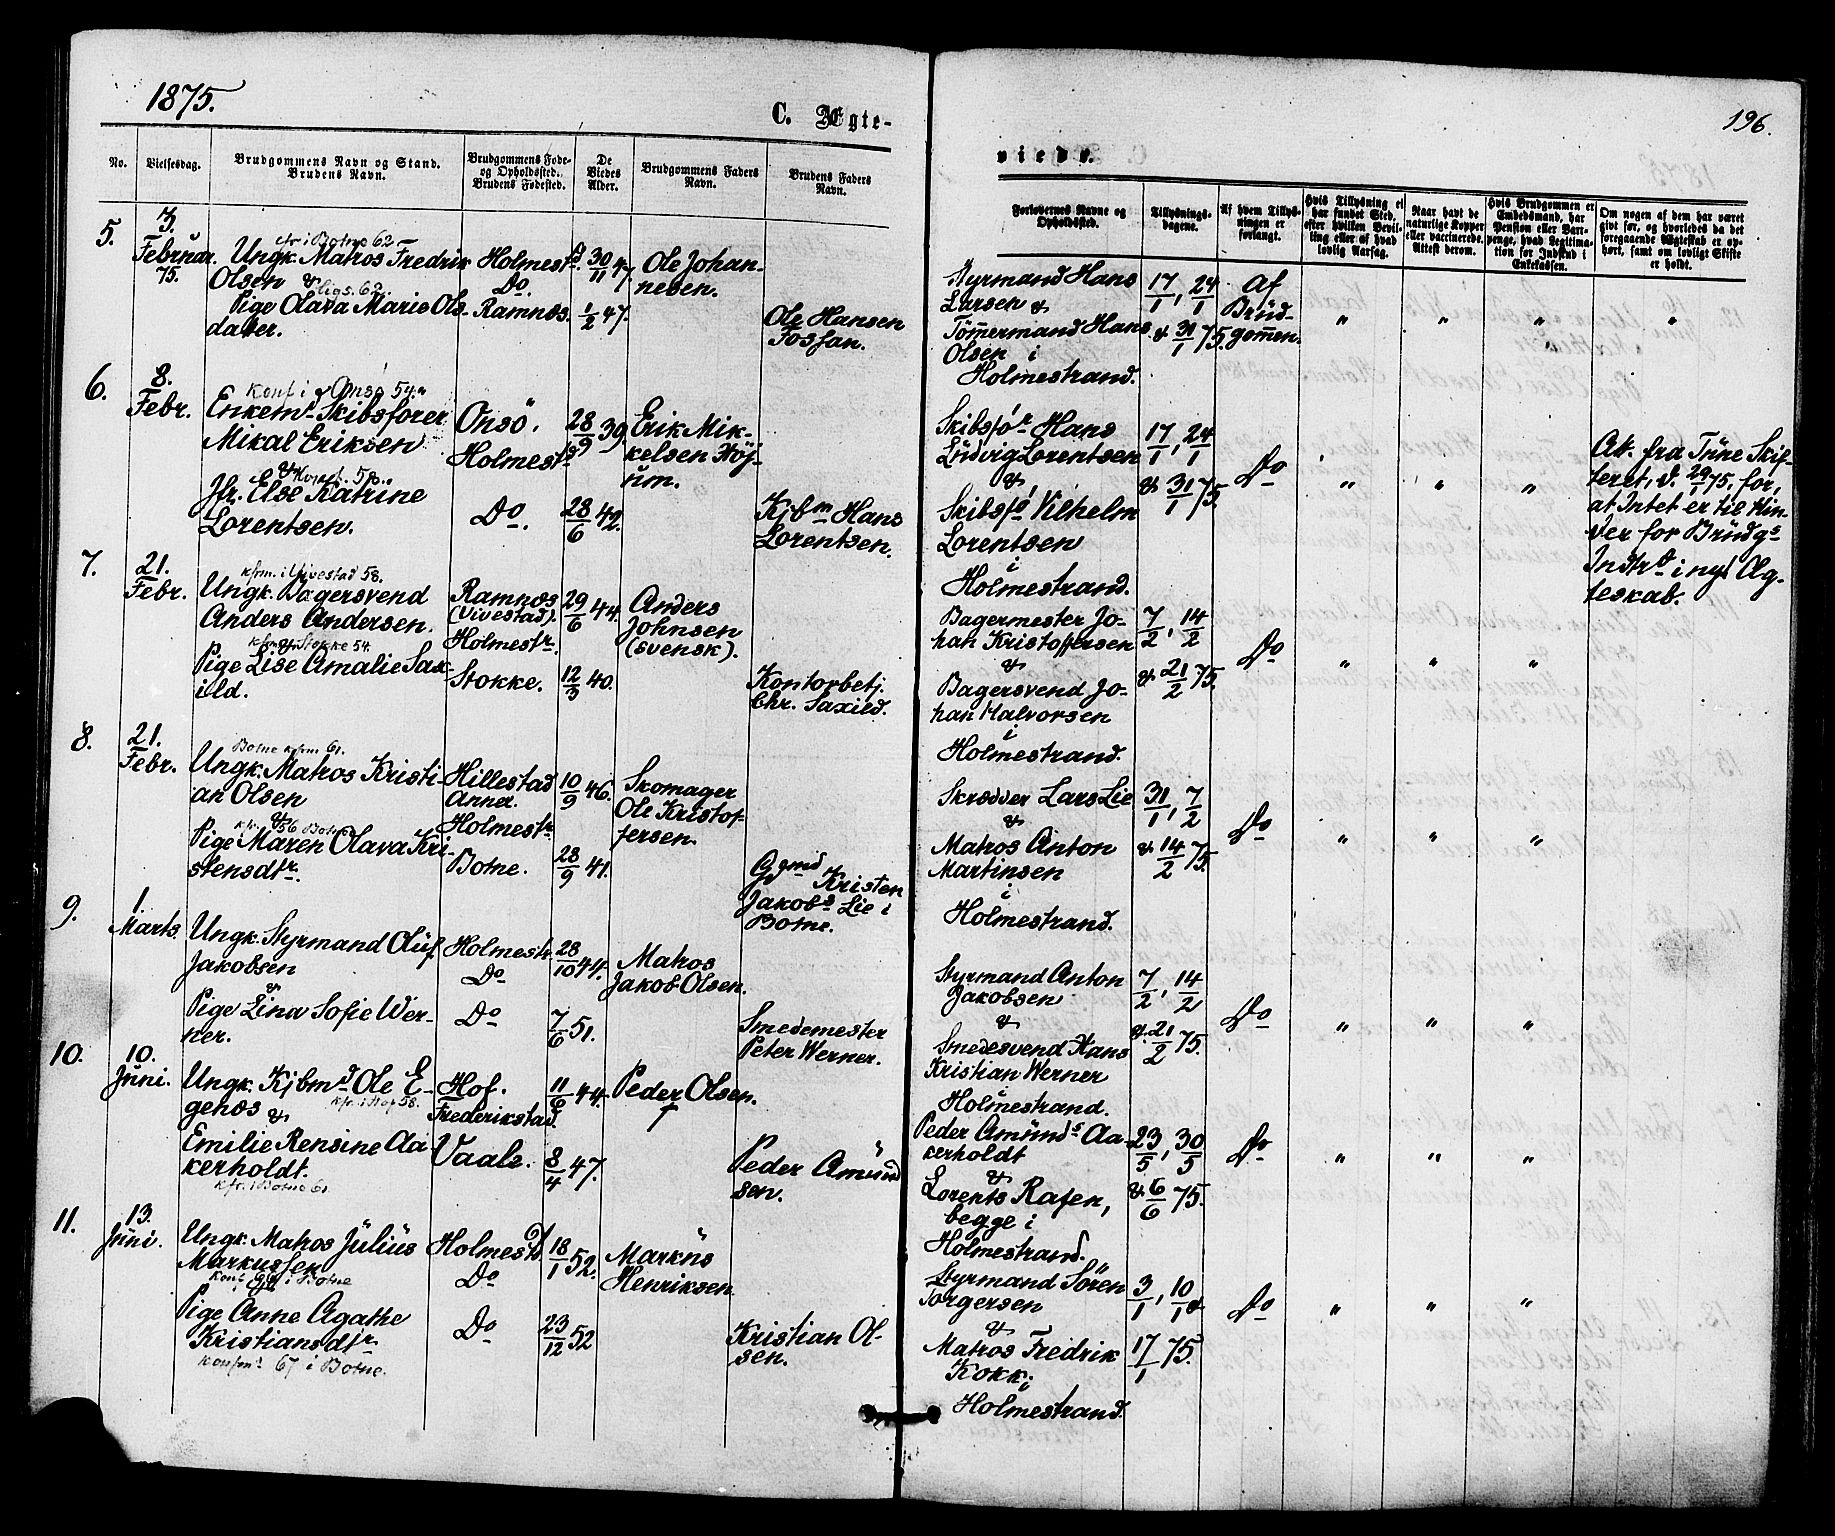 1875.
C. Ægte-
No.
Vielsesdag.
Brudgommens Navn og Stand.
Brudens Navn.
Brudgommens Føde-
og Opholdssted.
Brudens Fødested.
De
Viedes
Alder.
Brudgommens Faders
Navn.
Brudens Faders
Navn.
5.
3.
Februar
75.
cfr i Botne 62
Ungk. Matros Fredrik
Olsen &
ligs. 62.
Pige Olava Marie Ols-
datter.
Holmestd.
Do.
Ramnæs.
30/11 47
1/2 47.
Ole Johan-
nesen.
Ole Hansen
Fossan.
6.
8.
Febr.
Konf i Onsø 54.
Enkemd. Skibsfører
Mikal Eriksen
& Konf. 58.
Jfr. Else Katrine
Lorentsen.
Onsö.
Holmestd.
Do.
28/9 39.
28/6 42.
Erik Mik-
kelsen Höj-
um.
Kjbm Hans
Lorentsen.
7.
21.
Febr.
kfrm. i Vivestad 58.
Ungk. Bagersvend
Anders Andersen.
kfr. & Stokke 54.
Pige Lise Amalie Sax-
ild.
Ramnæs
(Vivestad).
Holmestr.
Stokke.
29/6 44.
12/3 40.
Anders
Johnsen
(svensk).
Kontorbetj.
Chr. Saxild.
8.
21.
Febr.
Botne kfrm 61.
Ungk. Matros Kristi-
an Olsen
&
kfr. 56 Botne
Pige Maren Olava Kri-
stensdtr.
Hillestad
Annex.
Holmestr.
Botne.
10/9 46.
28/9 41.
Skomager
Ole Kristof-
fersen.
Ggmd Kristen
Jakobs Lie i
Botne.
9.
1.
Marts.
Ungk. Styrmand Oluf
Jakobsen
&
Pige Lina Sofie Wer-
ner.
Holmestr.
Do
Do
28/10 44.
7/6 51.
Matros
Jakob Olsen.
Smedemester
Peter Werner.
10.
10.
Juni.
Ungk. Kjbmd Ole E-
genæs &
kfr. i Hof 58.
Emilie Rensine Aa-
kerholdt.
kfr. i Botne 61
Hof.
Frederikstad.
Vaale.
11/6 44.
8/4 47.
Peder Olsen.
†
Peder Amund
sen.
11.
13.
Juni.
Ungk. Matros Julius
Markussen
konf i Botne
Pige Anne Agathe
Kristiansdtr.
konfm. 67 i Botne.
Holmestd.
Do
Do
18/1 52.
23/12 52
Markus
Henriksen.
Kristian Ol-
sen.
196.
viede.
Forlovernes Navne og
Opholdssted.
Tillysnings-
dagene.
Af hvem Tillys-
ningen er
forlangt.
Hvis Tillysning ei
har fundet Sted,
efter hvilken Bevil-
ling eller af hvad
lovlig Aarsag.
Naar havt de
naturlige Kopper
eller vaccinerede.
Attest derom.
Hvis Brudgommen er
Embedsmand, har
Pension eller Vart-
penge, hvad Legitima-
tion for Indskud i
Enkekassen.
Om nogen af dem har været
gift før, og hvorledes da det
foregaaende Ægteskab er op-
hørt, samt om lovligt Skifte
er holdt.
Styrmand Hans
Larsen &
Tömmermand Hans
Olsen i
Holmestrand.
17/1, 24/1
& 31/1 75.
Af
Brud-
gommen.
" " " "
Skibsfør Hans
Ludvig Lorentsen
&
Skibsfø Vilhelm
Lorentsen
i
Holmestrand.
17/1, 24/1
& 31/1 75.
Do
" " "
At. fra Tune Skif-
teret, d. 29/1 75, for,
at Intet er til Hin-
der for Brudgs
Indtr. i nyt Æg-
teskab.
Bagermester Jo-
han Kristoffersen
&
Bagersvend Jo-
han Halvorsen
i
Holmestrand.
7/2, 14/2
& 21/2 75.
Do
" " "
Skrædder Lars Lie
&
Matros Anton
Martinsen
i
Holmestrand.
31/1, 7/2
& 14/2 75.
Do
" " "
Styrmand Anton
Jakobsen
&
Smedesvend Hans
Kristian Werner
i
Holmestrand.
7/2, 14/2
& 21/2 75.
Do
" " "
Peder Amunds Aa-
kerholdt
&
Lorents Rafen,
begge i
Holmestrand.
23/5, 30/5
& 6/6 75.
Do
" " "
Styrmand Sören
Torgersen
&
Matros Fredrik
Kokk i
Holmestrand.
3/1, 10/1 &
17/1 75.
Do
" " "